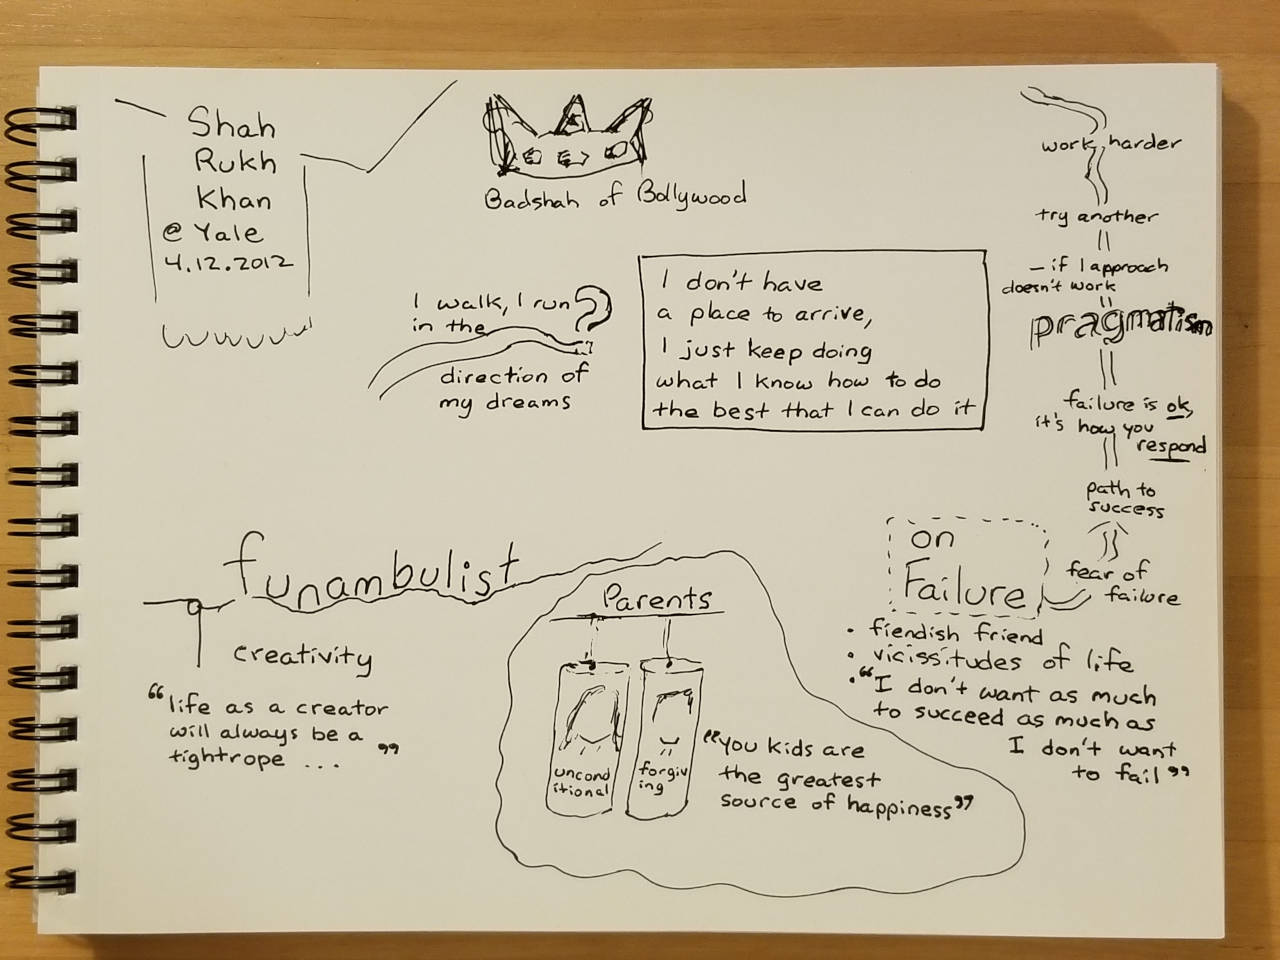 Shah
Rukh
Khan
@ Yale
4.12.2012
Badshah of Bollywood
I walk, I run
in the
direction of
my dreams
I don't have
a place to arrive,
I just keep doing
what I know how to do
the best that I can do it
work harder
try another
– if I approach
doesn't work
pragmatism
failure is ok,
it's how you
respond
path to
success
fear of
failure
on
Failure
• fiendish friend
• vicissitudes of life
• "I don't want as much
to succeed as much as
I don't want
to fail"
funambulist
creativity
"life as a creator
will always be a
tightrope ... "
Parents
uncond
itional
forgiv
ing
"you kids are
the greatest
source of happiness"